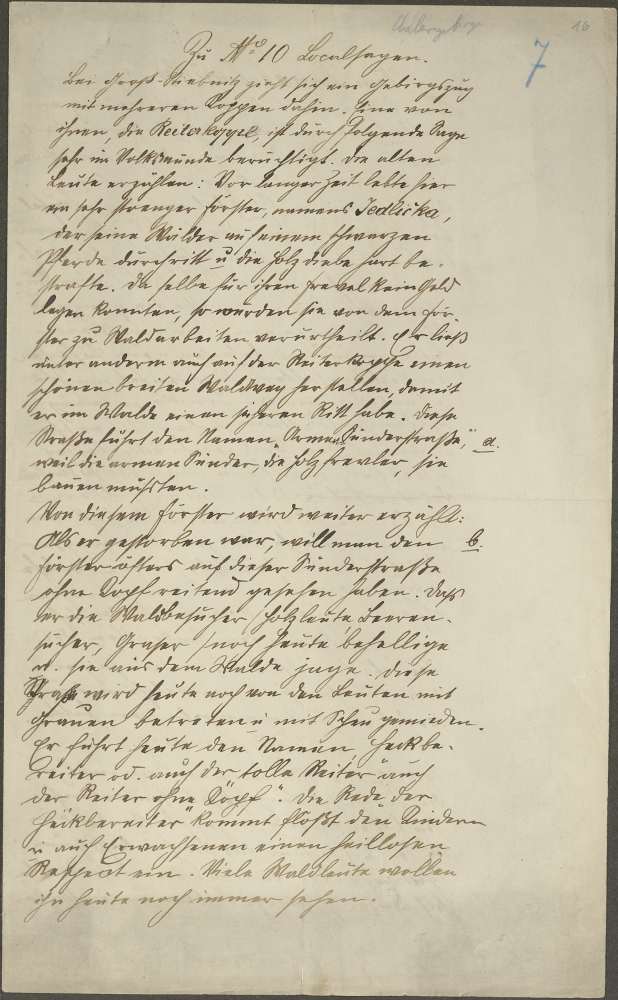 16
7
Zu No 10 Localsagen.
Bei Groß-Stiebnitz zieht sich ein Gebirgszug
mit mehreren Koppen dahin. Eine von
ihnen, die Reiterkoppe, ist durch folgende Sage
sehr im Volksmunde berüchtigt. Die alten
Leute erzählen: Vor langer Zeit lebte hier
ein sehr strenger Förster, namens Jedlička,
der seine Wälder auf einem schwarzen
Pferde durchritt u die Holzdiebe hart be-
strafte. Da selbe für ihren Frevel kein Geld
legen konnten, so wurden sie von dem För-
ster zu Waldarbeiten verurtheilt. Er ließ
unter anderm auch auf der Reiterkoppe einen
schönen breiten Waldweg herstellen, damit
er im Walde einen sicheren Ritt habe. Diese
Straße führt den Namen „Armesünderstraße," a.
weil die armen Sünder, die Holzfrevler, sie
bauen mußten.
Von diesem Förster wird weiter erzählt:
Als er gestorben war, will man den b.
Förster öfters auf dieser Sünderstraße
ohne Kopf reitend gesehen haben. Daß
er die Waldbesucher /Holzleute, Beeren-
sucher, Graser/ noch heute behellige
u. sie aus dem Walde jage. Diese
Straße wird heute noch von den Leuten mit
Grauen betreten u mit Scheu gemieden.
Er führt heute den Namen „Heckbe-
reiter od. auch der tolle Reiter" auch
der Reiter ohne Kopf". Die Rede der
Heckbereiter" kommt flößt den Kindern
u auch Erwachsenen einen heillosen
Respect ein. Viele Waldleute wollen
ihn heute noch immer sehen.